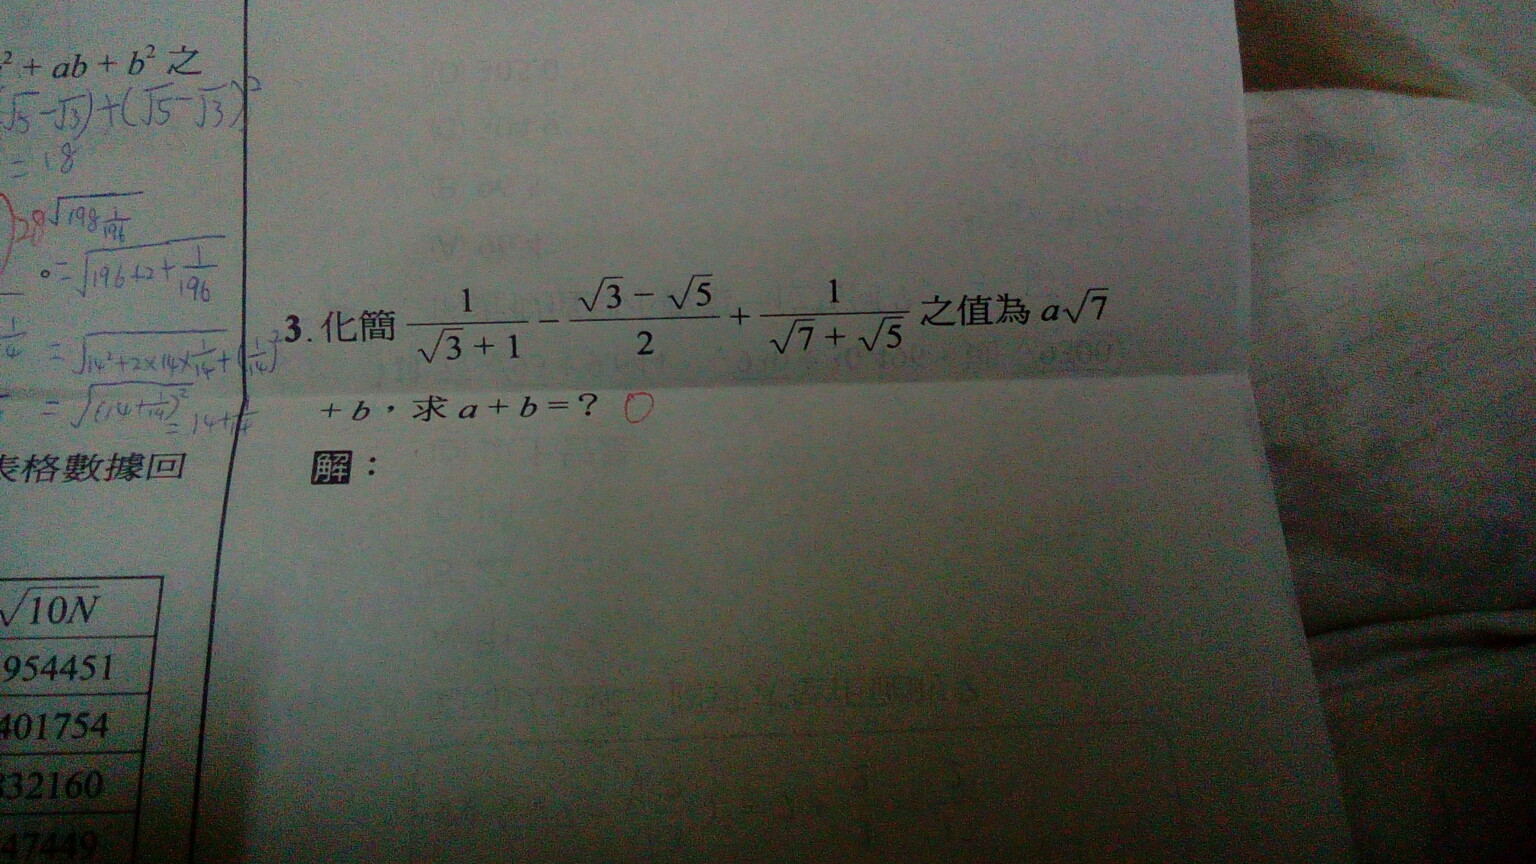 ² + ab + b² 之
√5 - √3) + (√5 - √3)²
= 18
28 √198 1/196
= √196 + 2 + 1/196
1/4 = √14² + 2×14×1/14 + (1/14)²
= √(14 + 1/14)²
= 14 + 1/14
表格數據回
√10N
954451
401754
332160
47449
3. 化簡 1/(√3 + 1) - (√3 - √5)/2 + 1/(√7 + √5) 之值為 a√7
+ b,求 a + b = ?
解: